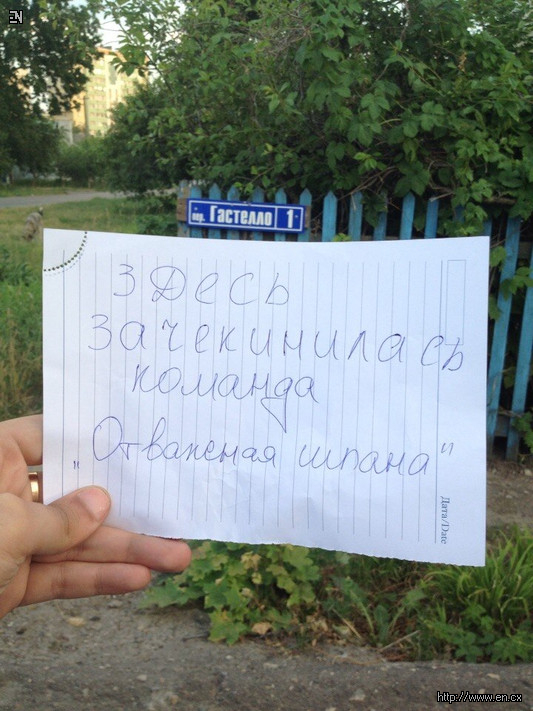 EN
пер. Гастелло 1
здесь
зачекинилась
команда
"Отважная шпана"
Дата/Date
http://www.en.cx